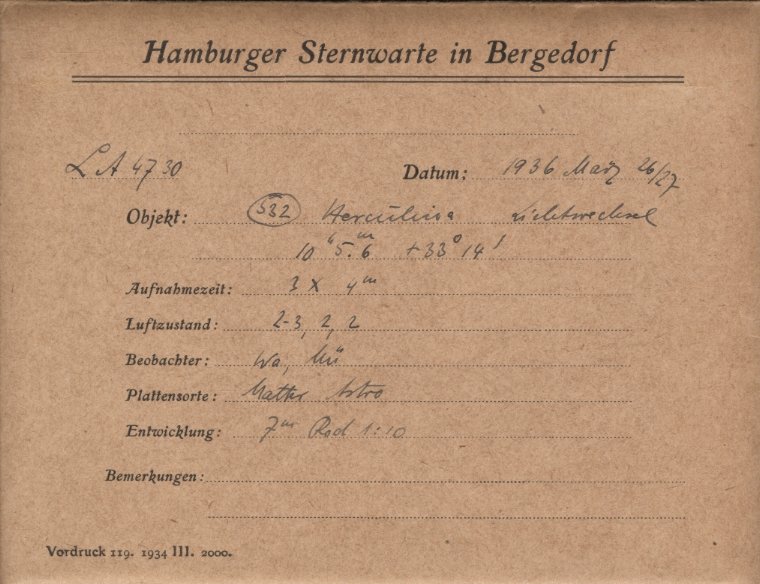 Hamburger Sternwarte in Bergedorf
LA 4730 Datum: 1936 März 26/27
Objekt: 532 Herculina Lichtwechsel
10ʰ 5.ᵐ6 +33° 14'
Aufnahmezeit: 3 x 4ᵐ
Luftzustand: 2-3, 2, 2
Beobachter: Wa, Mü
Plattensorte: Astro
Entwicklung: 7ᵐ Rod 1:10
Bemerkungen:
Vordruck 119. 1934 III. 2000.